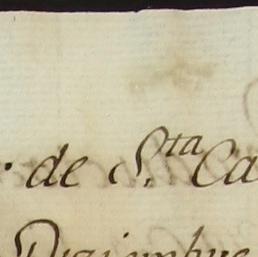 de S.ta Ca
Diziembre